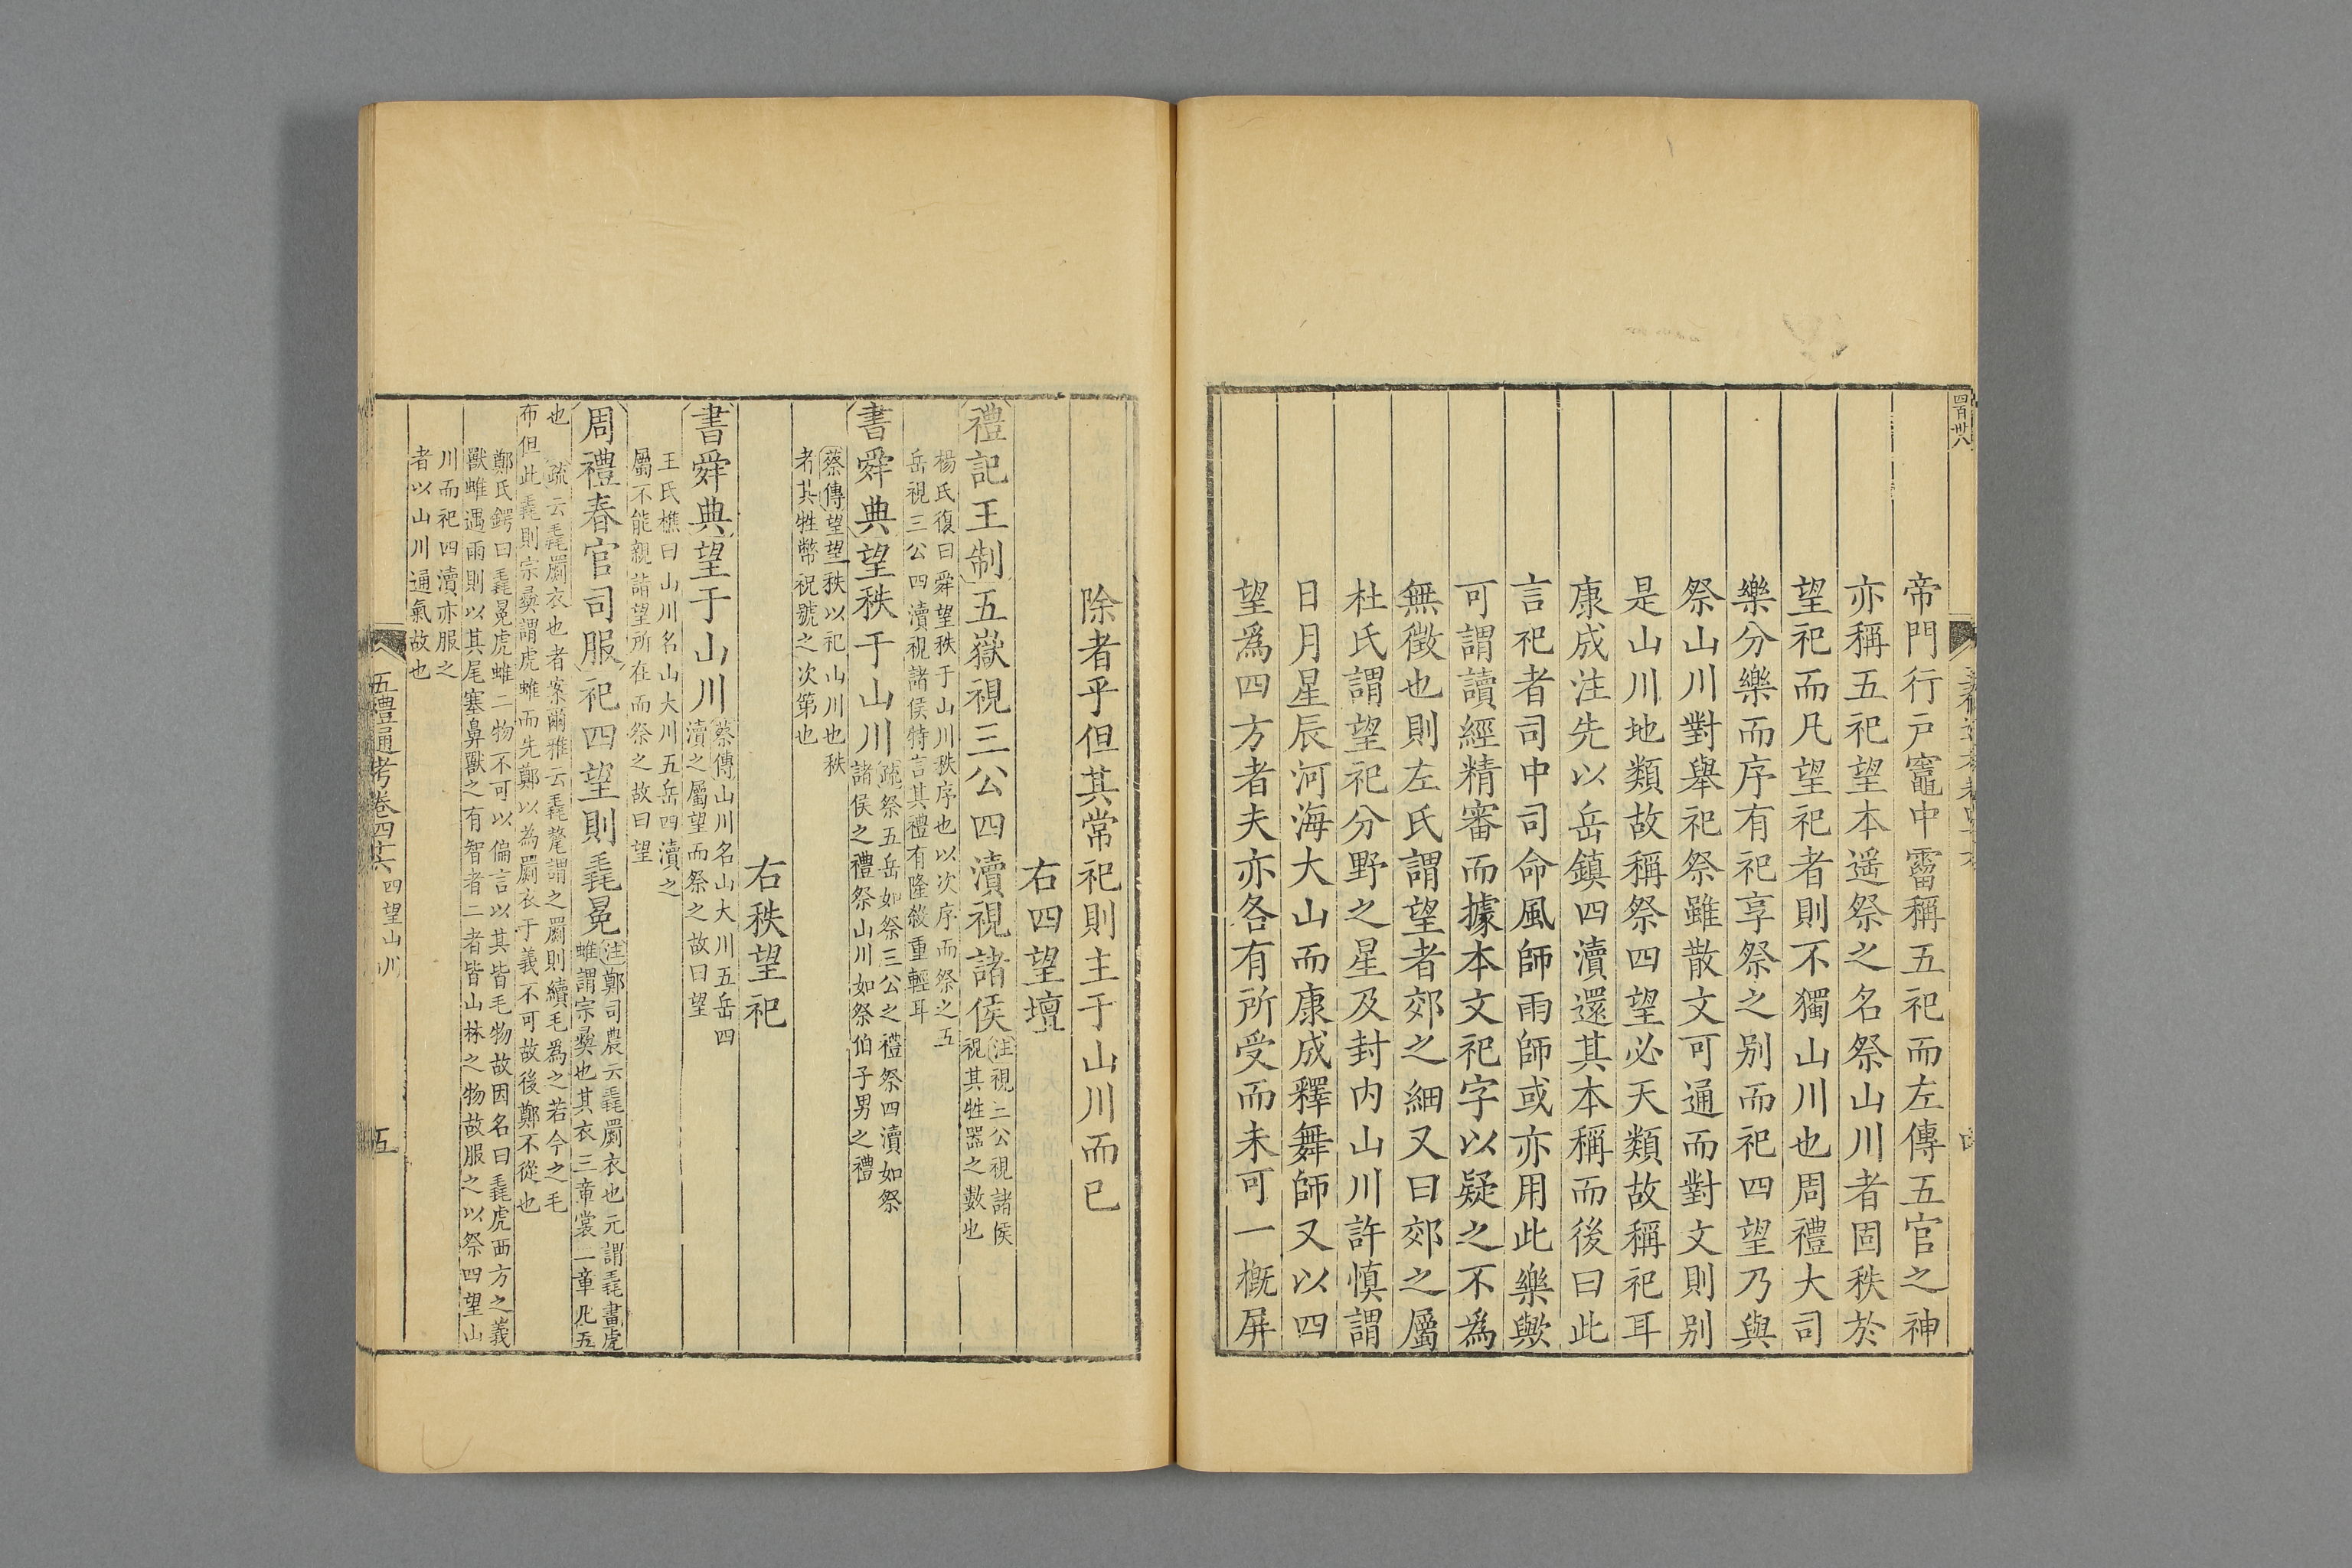 四百卅八
帝門行戶竈中霤稱五祀而左傳五官之神
亦稱五祀望本遥祭之名祭山川者固秩於
望祀而凡望祀者則不獨山川也周禮大司
樂分樂而序有祀享祭之别而祀四望乃與
祭山川對舉祀祭雖散文可通而對文則别
是山川地類故稱祭四望必天類故稱祀耳
康成注先以岳鎮四瀆還其本稱而後曰此
言祀者司中司命風師雨師或亦用此樂歟
可謂讀經精審而據本文祀字以疑之不為
無徵也則左氏謂望者郊之細又曰郊之屬
杜氏謂望祀分野之星及封内山川許慎謂
日月星辰河海大山而康成釋舞師又以四
望為四方者夫亦各有所受而未可一概屏
除者乎但其常祀則主于山川而已
右四望壇
禮記王制五嶽視三公四瀆視諸侯
注視三公視諸侯
視其牲器之數也
楊氏復曰舜望秩于山川秩序也以次序而祭之五
岳視三公四瀆視諸侯特言其禮有隆殺重輕耳
書舜典望秩于山川
疏祭五岳如祭三公之禮祭四瀆如祭
諸侯之禮祭山川如祭伯子男之禮
蔡傳望望秩以祀山川也秩
者其牲幣祝號之次第也
右秩望祀
書舜典望于山川
蔡傳山川名山大川五岳四
瀆之屬望而祭之故曰望
王氏樵曰山川名山大川五岳四瀆之
屬不能親詣望所在而祭之故曰望
周禮春官司服祀四望則毳冕
注鄭司農云毳罽衣也元謂毳畫虎
蜼謂宗彝也其衣三章裳二章凡五
也 疏云毳罽衣也者案爾雅云毳氂謂之罽則續毛為之若今之毛
布但此毳則宗彝謂虎蜼而先鄭以為罽衣于義不可故後鄭不從也
鄭氏鍔曰毳冕虎蜼二物不可以偏言以其皆毛物故因名曰毳虎西方之義
獸蜼遇雨則以其尾塞鼻獸之有智者二者皆山林之物故服之以祭四望山
川而祀四瀆亦服之
者以山川通氣故也
五禮通考卷四十六 四望山川 五